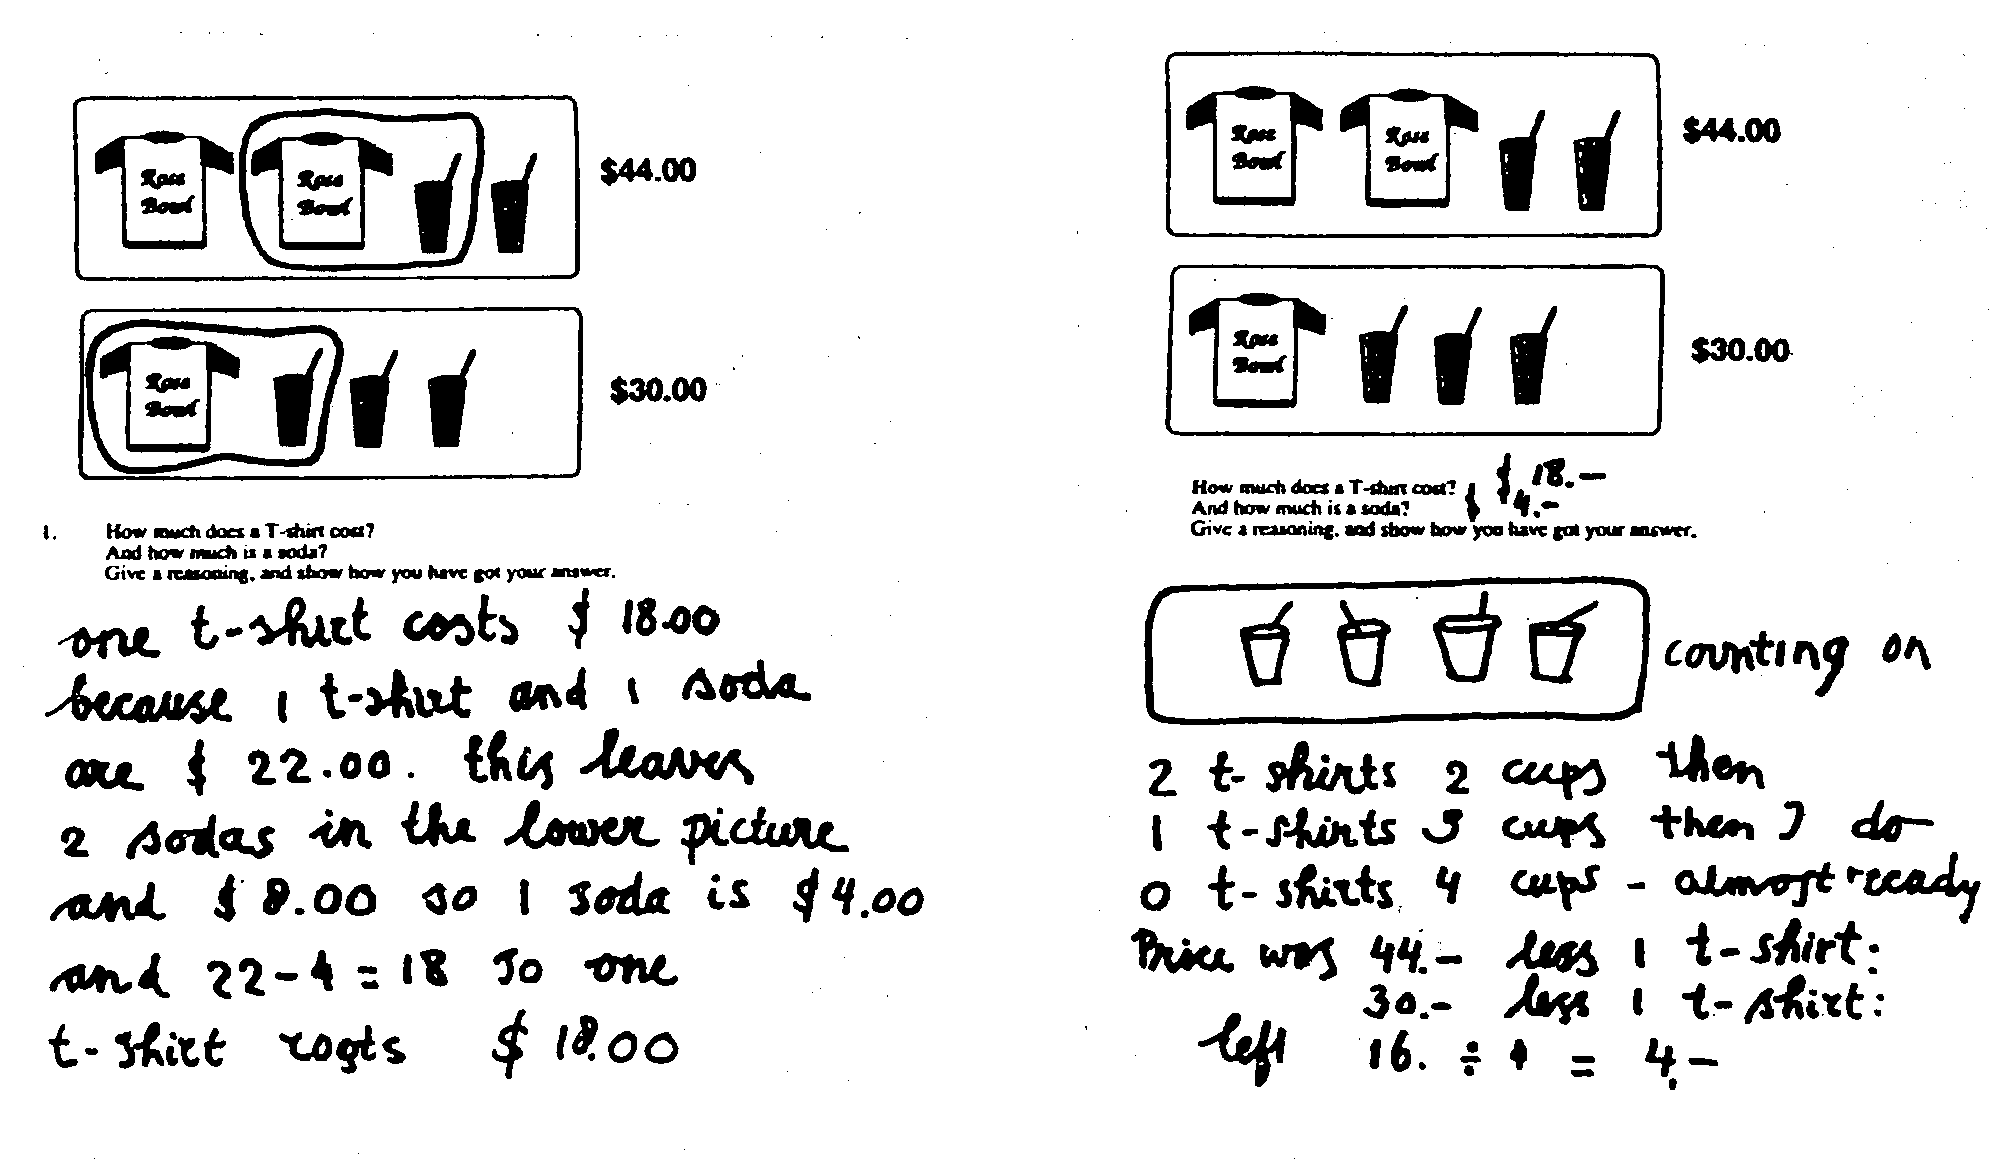 Rose Rose
Bowl Bowl
$44.00
Rose
Bowl
$30.00
1. How much does a T-shirt cost?
And how much is a soda?
Give a reasoning, and show how you have got your answer.
one t-shirt costs $ 18.00
because 1 t-shirt and 1 soda
are $ 22.00. this leaves
2 sodas in the lower picture
and $ 8.00 so 1 soda is $ 4.00
and 22-4 = 18 so one
t-shirt costs $ 18.00
Rose Rose
Bowl Bowl
$44.00
Rose
Bowl
$30.00
How much does a T-shirt cost? $ 18.-
And how much is a soda? $ 4.-
Give a reasoning, and show how you have got your answer.
counting on
2 t-shirts 2 cups then
1 t-shirts 3 cups then I do
0 t-shirts 4 cups - almost ready
Price was 44.- less 1 t-shirt:
30.- less 1 t-shirt:
left 16. ÷ 4 = 4.-